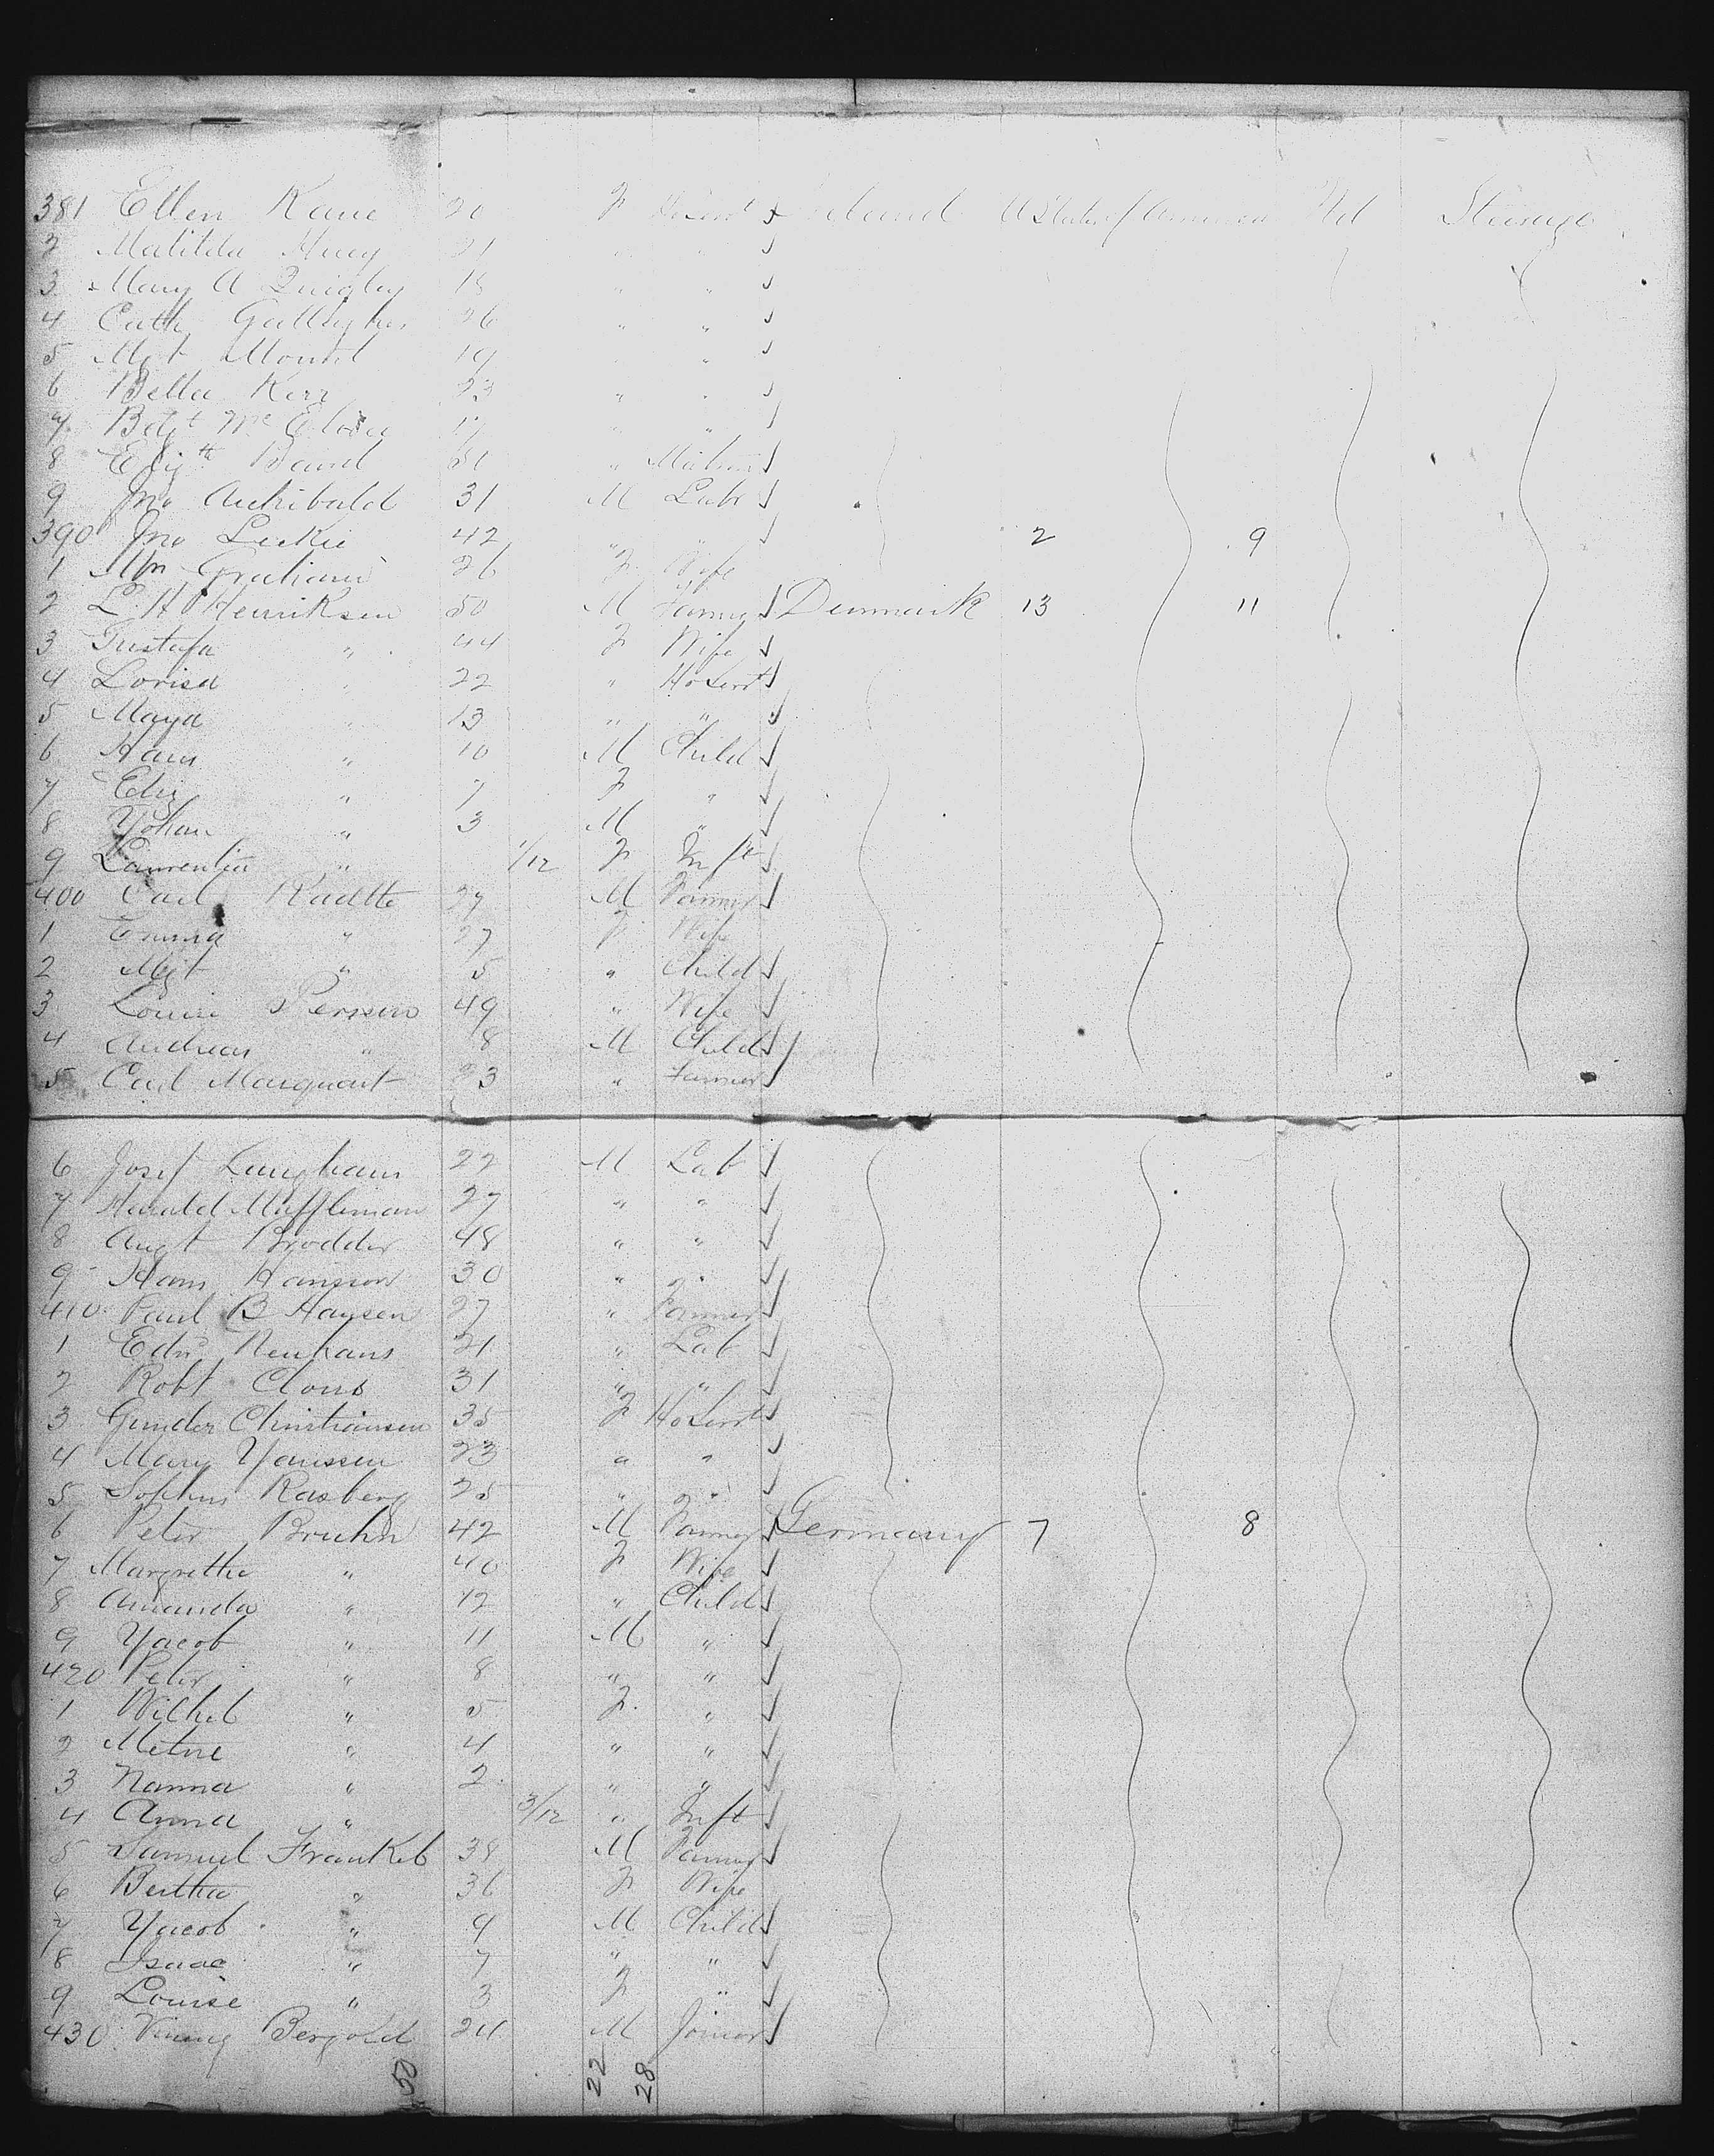 381 Ellen Kane 20 F Ho Servt Ireland U States of America Steerage
2 Matilda Huey 21 " "
3 Mary A Quigley 18 " "
4 Cath Gallagher 26 " "
5 Mgt 19 " "
6 Bella Kerr 23 " "
7 Bdgt 17 " "
8 Elizth Baird " Matron
9 Jno Archibald 31 M Labr
390 Jno Leckie 42 " " 2 9
1 Mrs Graham 26 F Wife
2 L. H Henriksen 50 M Farmer Denmark 13 11
3 Gustafa " 44 F Wife
4 Lovisa " 22 " Ho Servt
5 Maya " 13 " "
6 Hans " 10 M Child
7 Eliz " 7 F "
8 Yohan " 3 M "
9 Laurentia " 1/12 F Inft
400 Carl Radtte 27 M Farmer
1 Emma " 27 F Wife
2 Mgt " 5 " Child
3 Louise 49 " Wife
4 Andreas " 8 M Child
5 Carl Marquart 23 " Farmer
6 Josef Langhans 22 M Lab
7 Harald 27 " "
8 Augt Brodder 48 " "
9 Hans Hansson 30 " "
410 Paul B Hansen 27 " Farmer
1 Edwd Neuhaus 21 " Lab
2 Robt Clous 31 " "
3 Gunder Christiansen 35 F Ho Servt
4 Mary Yanssen 23 " "
5 Sophus Rasberg 25 " "
6 Peter Bruhn 42 M Farmer Germany 7 8
7 Margrethe " 40 F Wife
8 Amanda " 12 " Child
9 Yacob " 11 M "
420 Peter " 8 " "
1 Wilhel " 5 F "
2 Metne " 4 " "
3 Nanna " 2 " "
4 Anna " 3/12 " Inft
5 Samuel Frankel 38 M Farmer
6 Bertha " 36 F Wife
7 Yacob " 9 M Child
8 Isaac " 7 " "
9 Louise " 3 F "
430 Bergold 24 M Joiner
50 22 28